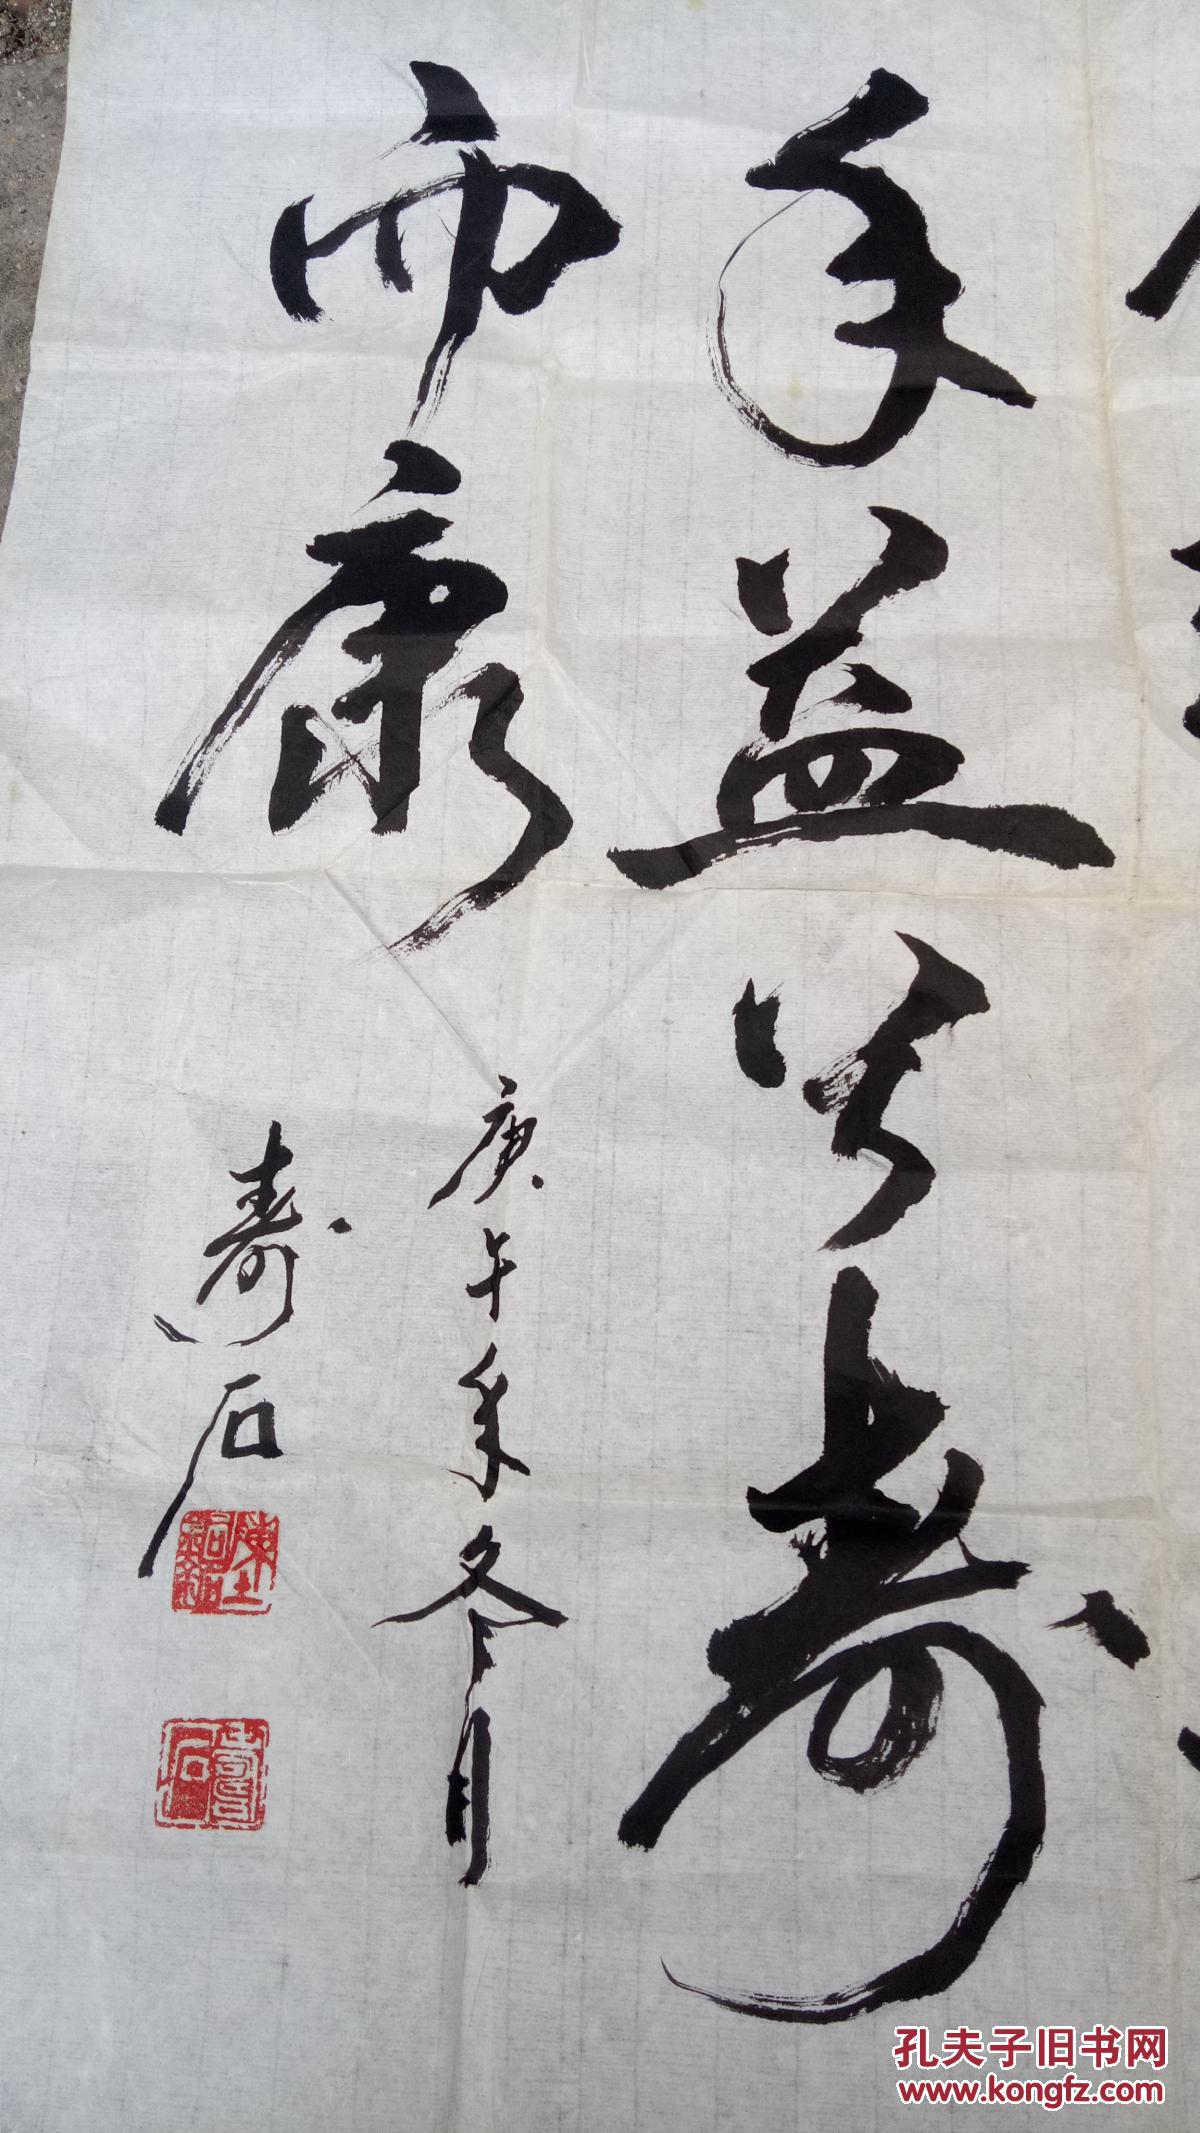 年益兮寿
而康
庚午年冬月
寿石
壽石
孔夫子旧书网
www.kongfz.com